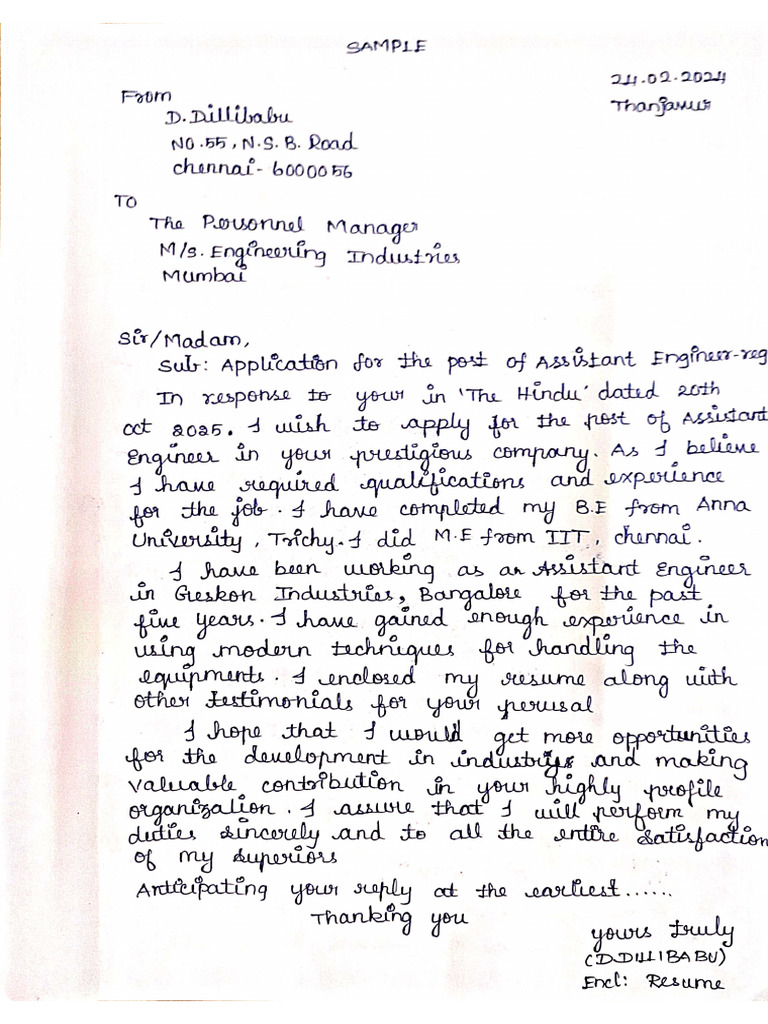 SAMPLE
24.02.2024
From
Thanjavur
D. Dillibabu
NO.55, N.S.B. Road
chennai- 6000056
TO
The Personnel Manager
M/s. Engineering Industries
Mumbai
Sir/Madam,
Sub: Application for the post of Assistant Engineer-reg
In response to your in 'The Hindu' dated 20th
oct 2025. I wish to apply for the post of Assistant
Engineer in your prestigious company. As I believe
I have required qualifications and experience
for the job. I have completed my B.E from Anna
University, Trichy. I did M.E from IIT, chennai.
I have been working as an Assistant Engineer
in Greskon Industries, Bangalore for the past
five years. I have gained enough experience in
using modern techniques for handling the
equipments. I enclosed my resume along with
other testimonials for your perusal
I hope that I would get more opportunities
for the development in industries and making
valuable contribution in your highly profile
organization. I assure that I will perform my
duties sincerely and to all the entire satisfaction
of my superiors
Anticipating your reply at the earliest......
Thanking you
yours truly
(D.DILLIBABU)
Encl: Resume